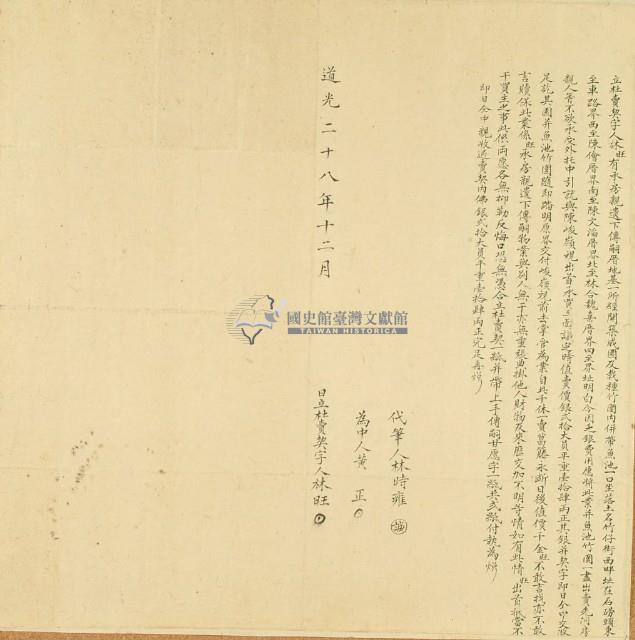 立杜賣契字人林旺有承房親遺下傳嗣厝地基一所經開築成園及栽種竹圍內併帶魚池一口坐落土名竹仔街西畔址在石磅頭東
至車路界西至陳繪厝界南至陳文滔厝界北至林合魏喜厝界四至界址明白今因乏銀費用愿將此業并魚池竹圍一盡出賣先問房
親人等不欲承受外托中引就與陳峻嶺觀出首承買三面議定時值賣價銀弍拾大員平重壹拾肆兩正其銀并契字即日仝中交收
足訖其園并魚池竹圍隨即踏明原界交付峻嶺觀前去掌管為業自此千休一賣葛藤永斷日後值價千金旺不敢言找亦不敢
言贖保此業係旺承房親遺下傳嗣物業與別人無干亦無重張典掛他人財物及來歷交加不明等情如有此情旺出首抵當不
干買主之事此係兩愿各無抑勒反悔口恐無憑合立杜賣契一紙并帶上手傳嗣甘愿字一紙共弍紙付執為炤
即日仝中親收過賣契內佛銀弍拾大員平重壹拾肆兩正完足再炤
代筆人林時雍
為中人黃正
道光二十八年十二月
日立杜賣契字人林旺
國史館臺灣文獻館
TAIWAN HISTORICA